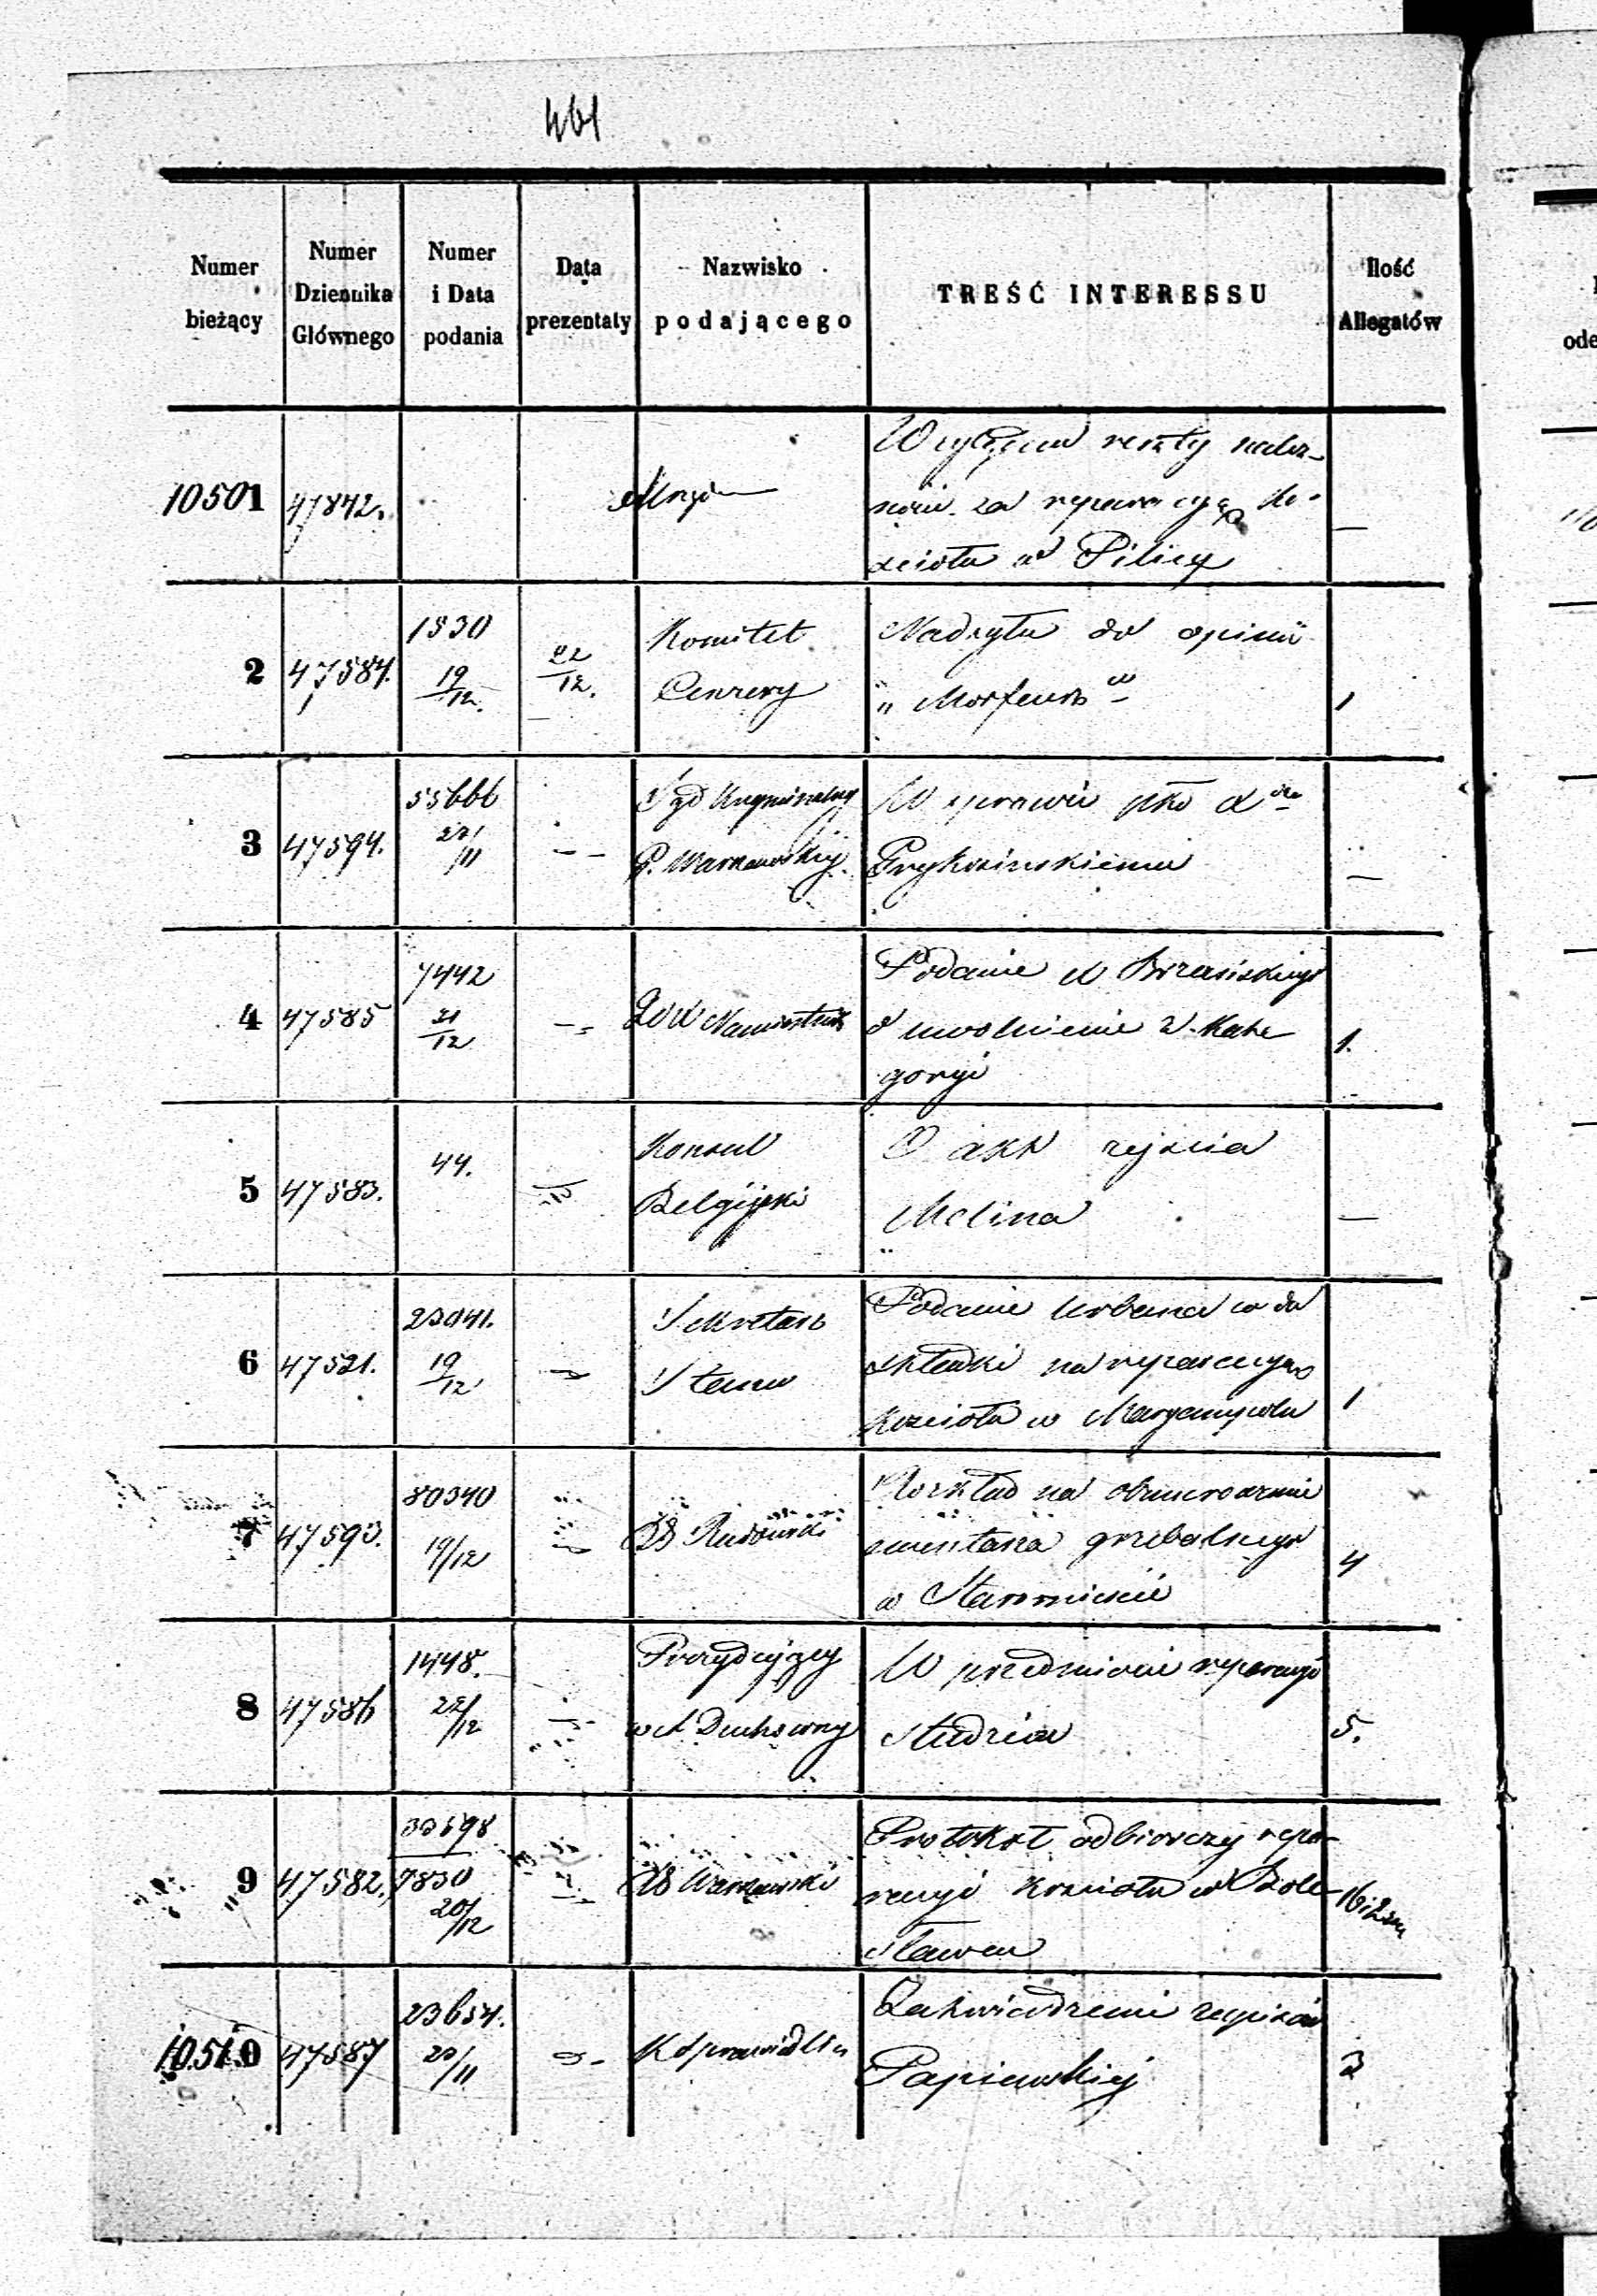 461
Numer bieżący
Numer Dziennika Głównego
Numer i Data podania
Data prezentaty
Nazwisko podającego
TREŚĆ INTERESSU
Ilość Allegatów
ode
10501 47842.
reszty należ-
za reparacyą Ko-
ścioła w Pilicy
—
2 47584. 1530 19/12. 22/12.
Komitet
Cenzury
Nadsyła do opinii
„Morfeusz"
1
3 47594. 55666 27/11 - -
Sąd Kryminalny
G. Warszawskiej.
W sprawie pko
—
4 47585 7442 21/12 - -
Namiestnik
Podanie
o uwolnienie z Kate
goryi
1.
5 47583. 44.
Konsul
Belgijski
O akt zejścia
Melina
—
6 47521. 23041. 19/12 -
Sekretarz
Stanu
Podanie Urbana
składki na reparacyą
Kościoła w Maryampolu
1
7 47590. 80340 19/12
RG Radomski
Rozkład na obmurowanie
cmentarza grzebalnego
w Staromieście
4
8 47586 1448. 22/12 -
Prezydujący
w Duchowny
W przedmiocie reperacyi
studzien
5.
9 47582. 33698 7830 20/12
RG Warszawski
Protokół odbiorczy repa-
racyi kościoła w Bole-
sławcu
16
10510 47587 23654. 20/11 -
K Sprawiedliw
Zatwierdzenie zapisów
Papiewskiej
3